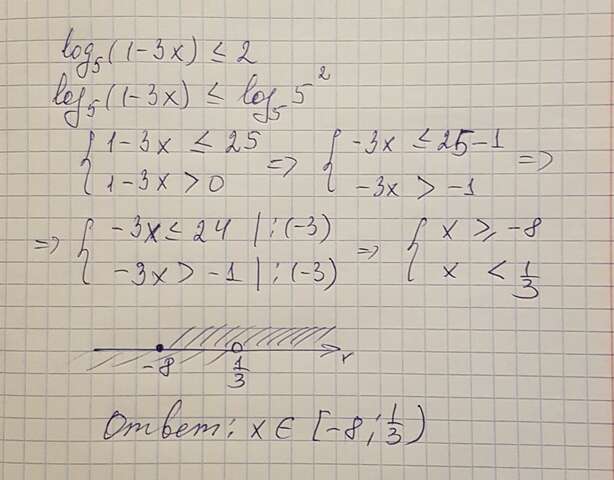 log₅(1-3x) ≤ 2
log₅(1-3x) ≤ log₅5²
{ 1-3x ≤ 25 => { -3x ≤ 25-1 =>
{ 1-3x > 0 { -3x > -1
=> { -3x ≤ 24 | : (-3) => { x ≥ -8
{ -3x > -1 | : (-3) { x < 1/3
-8 1/3 x
Ответ: x ∈ [-8; 1/3)